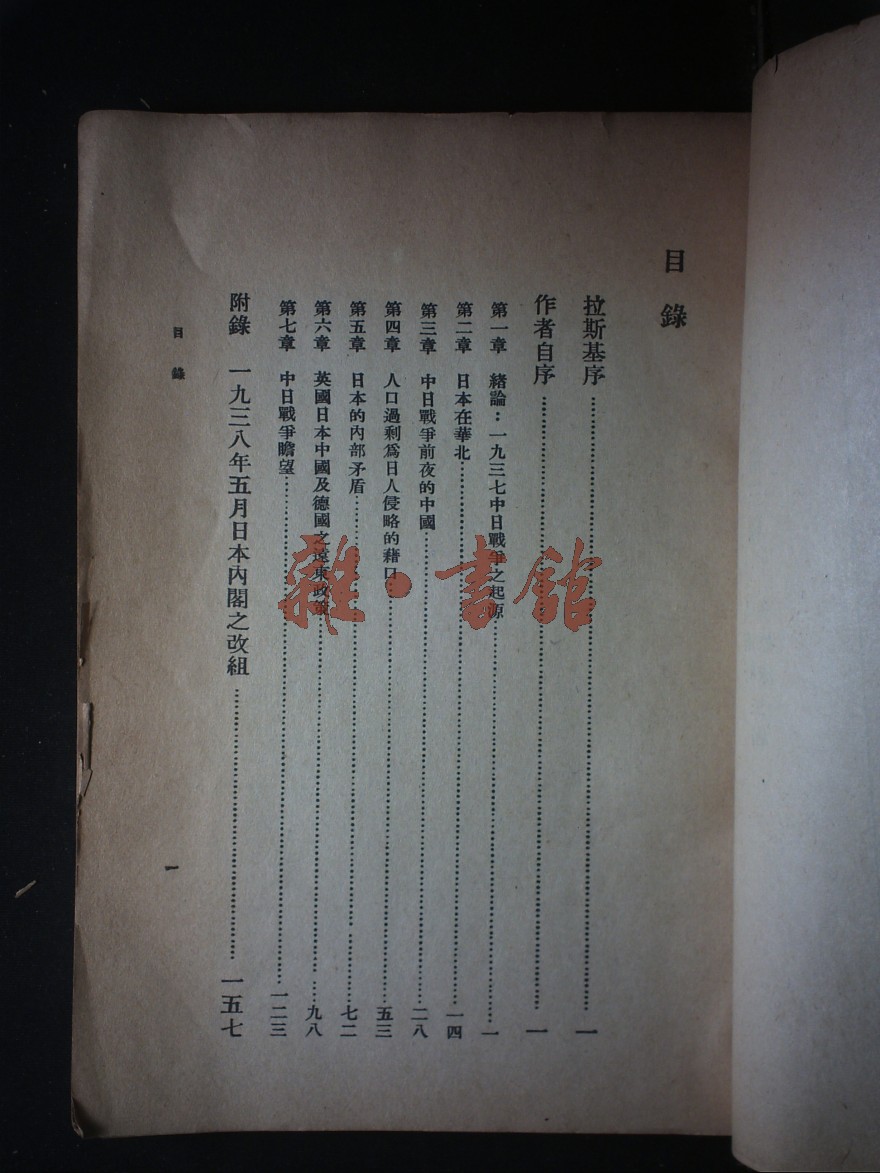 目錄
拉斯基序……一
作者自序……一
第一章 緒論：一九三七中日戰爭之起源……一
第二章 日本在華北……一四
第三章 中日戰爭前夜的中國……二八
第四章 人口過剩爲日人侵略的藉口……五三
第五章 日本的內部矛盾……七二
第六章 英國日本中國及德國之遠東政策……九八
第七章 中日戰爭瞻望……一二三
附錄 一九三八年五月日本內閣之改組……一五七
目錄
一
雜·書館